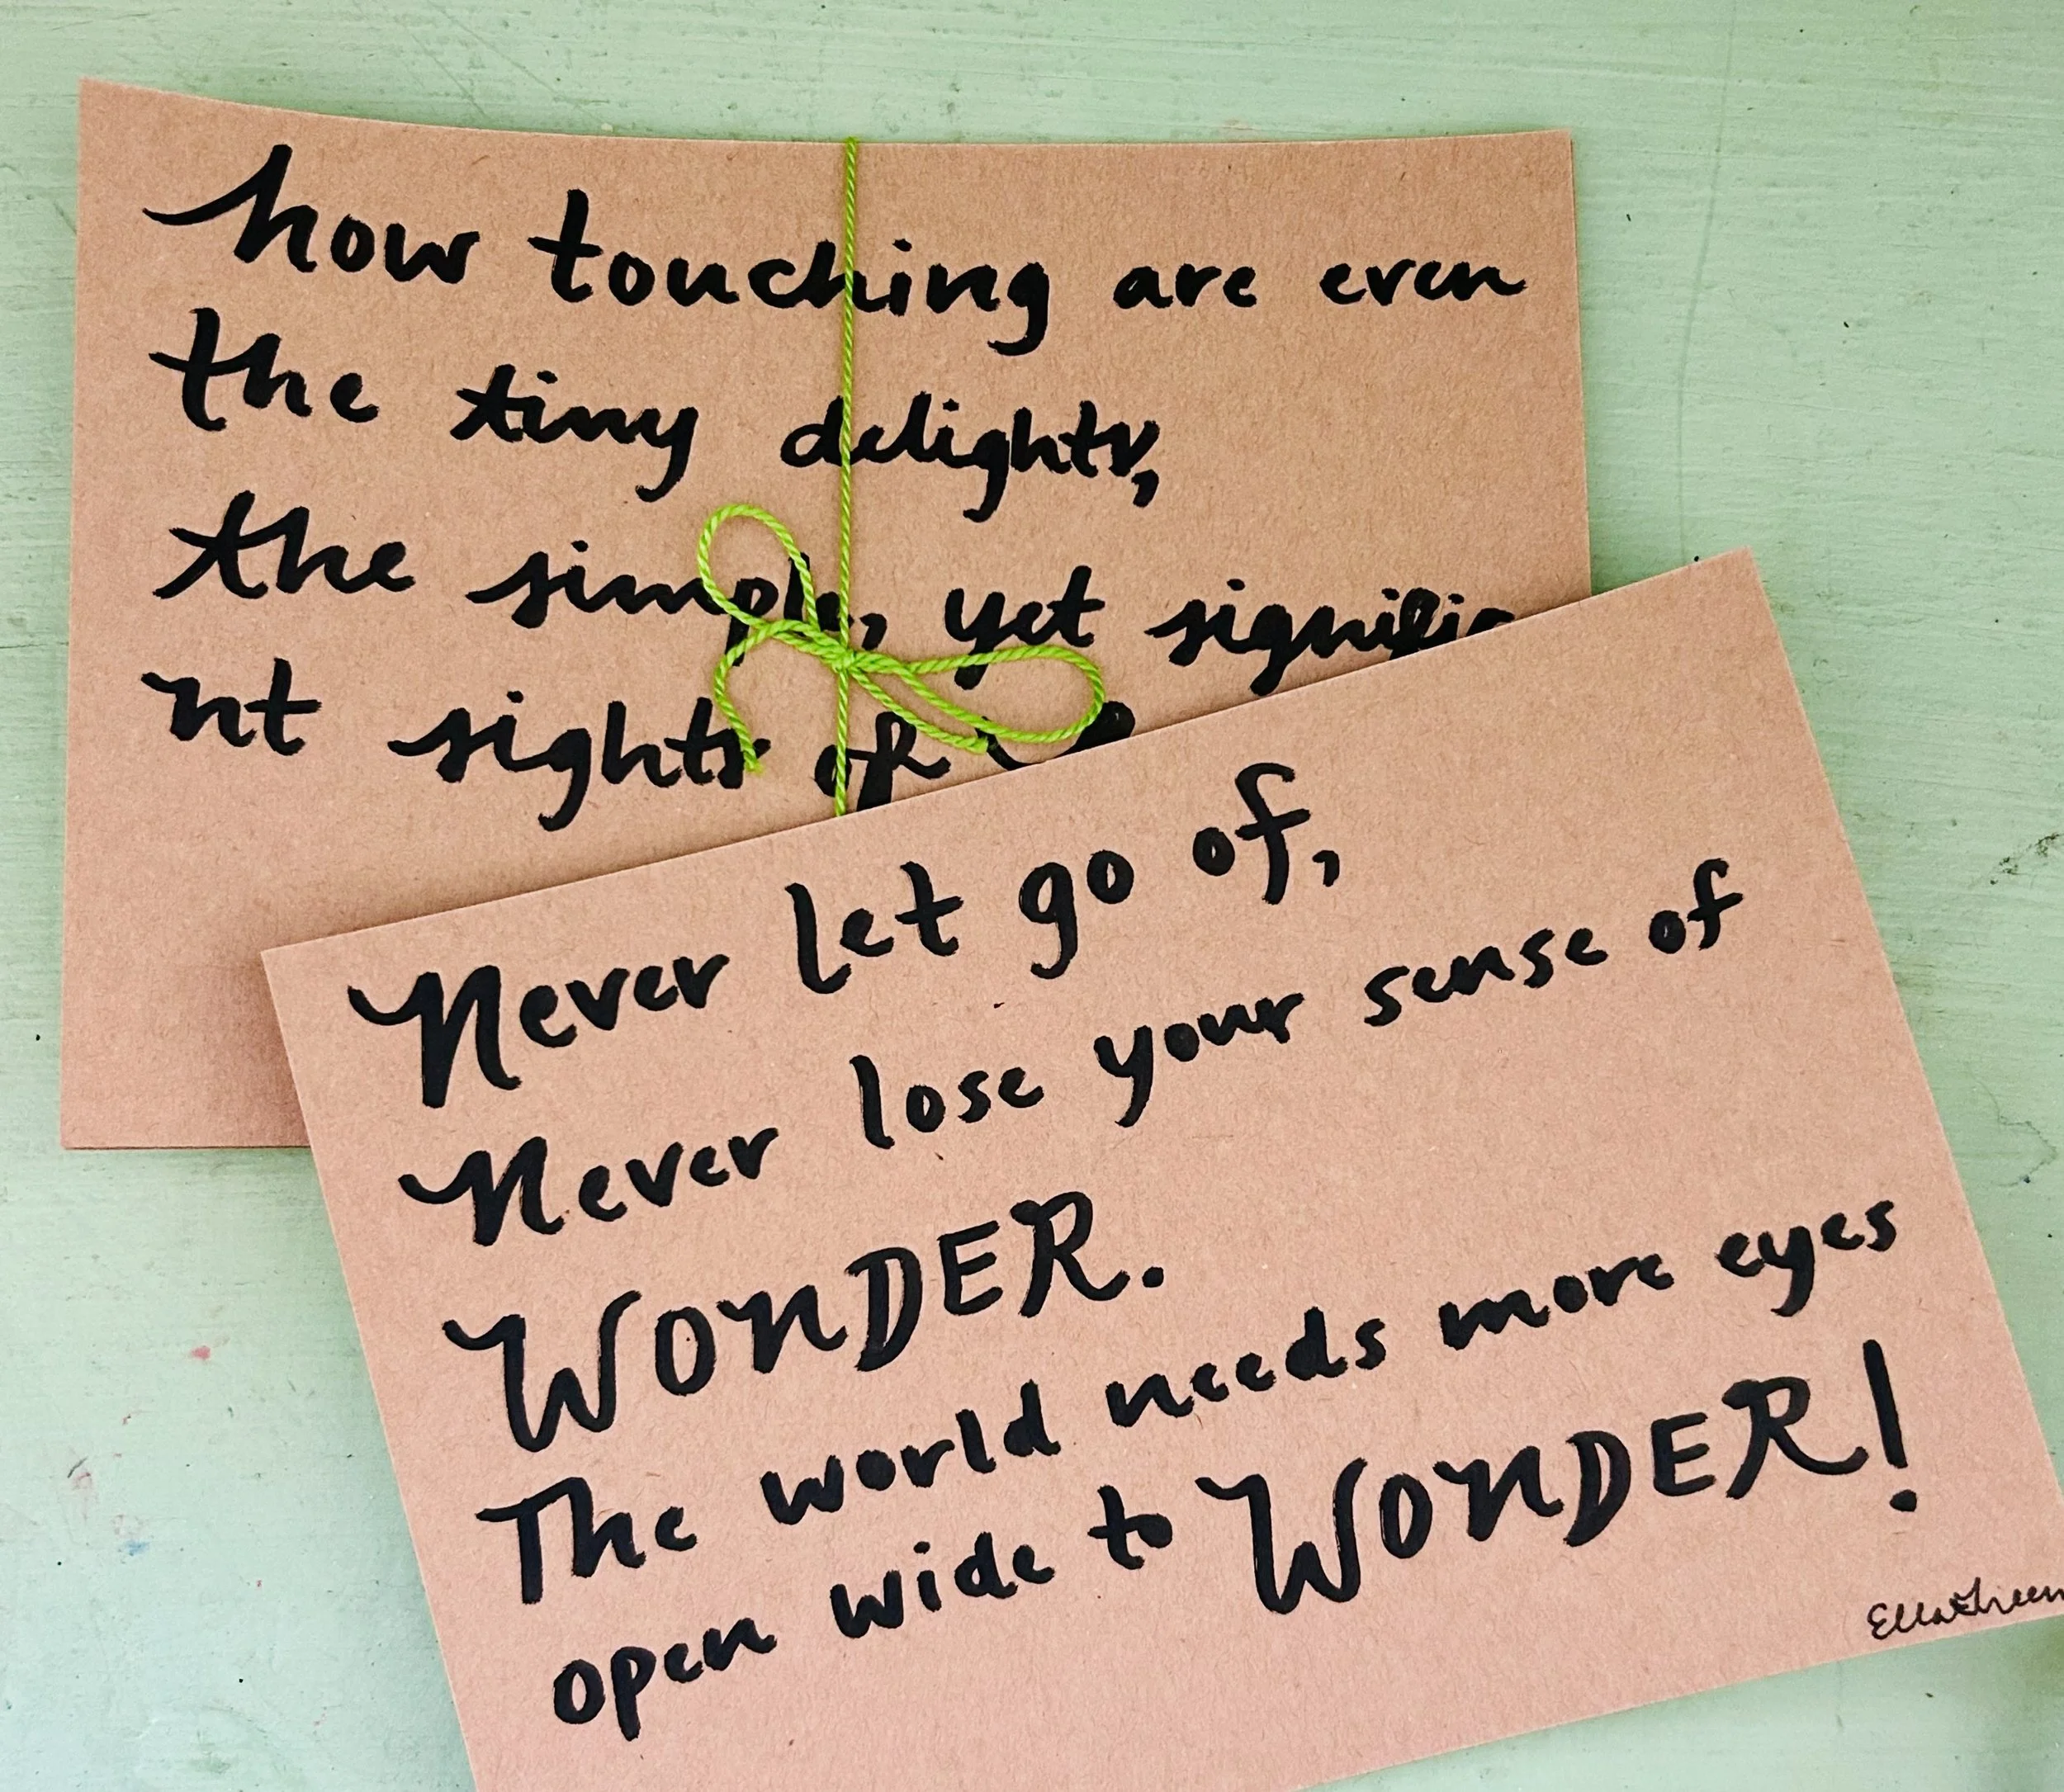 how touching are even
the tiny delights,
the simple, yet signific
nt sights of
Never let go of,
Never lose your sense of
WONDER.
The world needs more eyes
open wide to WONDER!